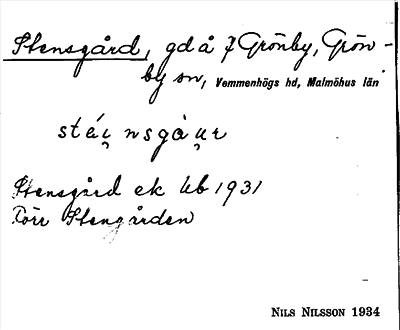 Stensgård, gd å 7 Grönby, Grön-
by sn, Vemmenhögs hd, Malmöhus län
stéi̯nsgȧu̯r
Stensgård ek Ub 1931
Förr Stengården
NILS NILSSON 1934